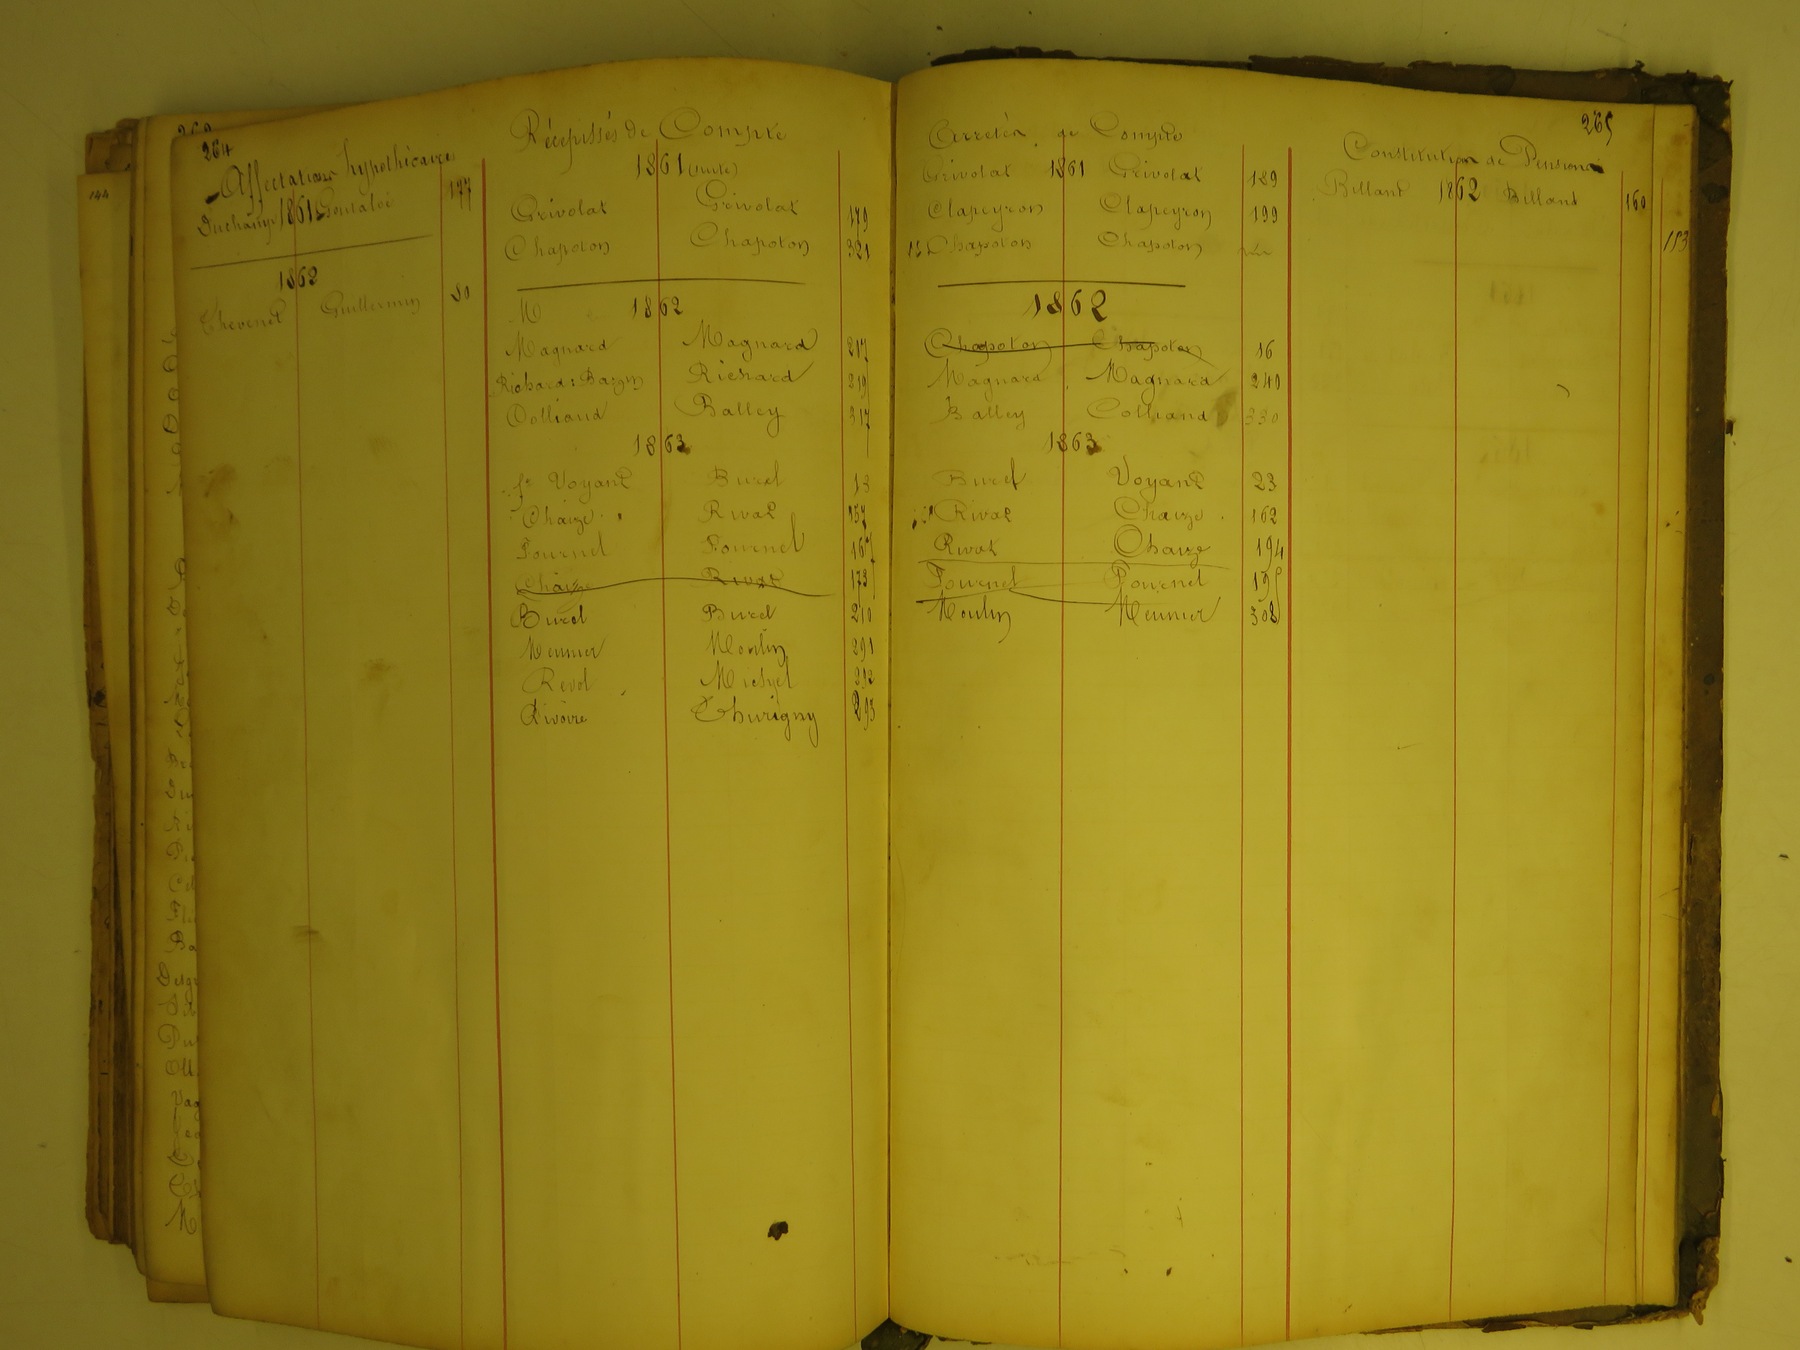 264
Affectations hypothécaires
1861
177
1862
Thevenet Guillermin 80
Récépissés de Compte
1861 (suite)
Grivolat Grivolat 179
Chapoton Chapoton 321
M 1862
Magnard Magnard 217
Richard Richard 219
Colliand Balley 317
1863
Voyant Burel 13
Chaize Rivat 157
Fournel Fournel 167
Chaize Rivat 173
Burel Burel 210
Meunier Moulin 291
Revol Michel 292
Rivoire Thurigny 293
265
Arretés de Compte
Grivolat 1861 Grivolat 189
Clapeyron Clapeyron 199
Chapoton Chapoton
1862
Chapoton Chapoton 16
Magnard Magnard 240
Balley Colliand 330
1863
Burel Voyant 23
Rivat Chaize 162
Rivat Chaize 194
Fournel Fournel 195
Moulin Meunier 308
Constitution de Pensions
Billand 1862 Billand 160
153
144